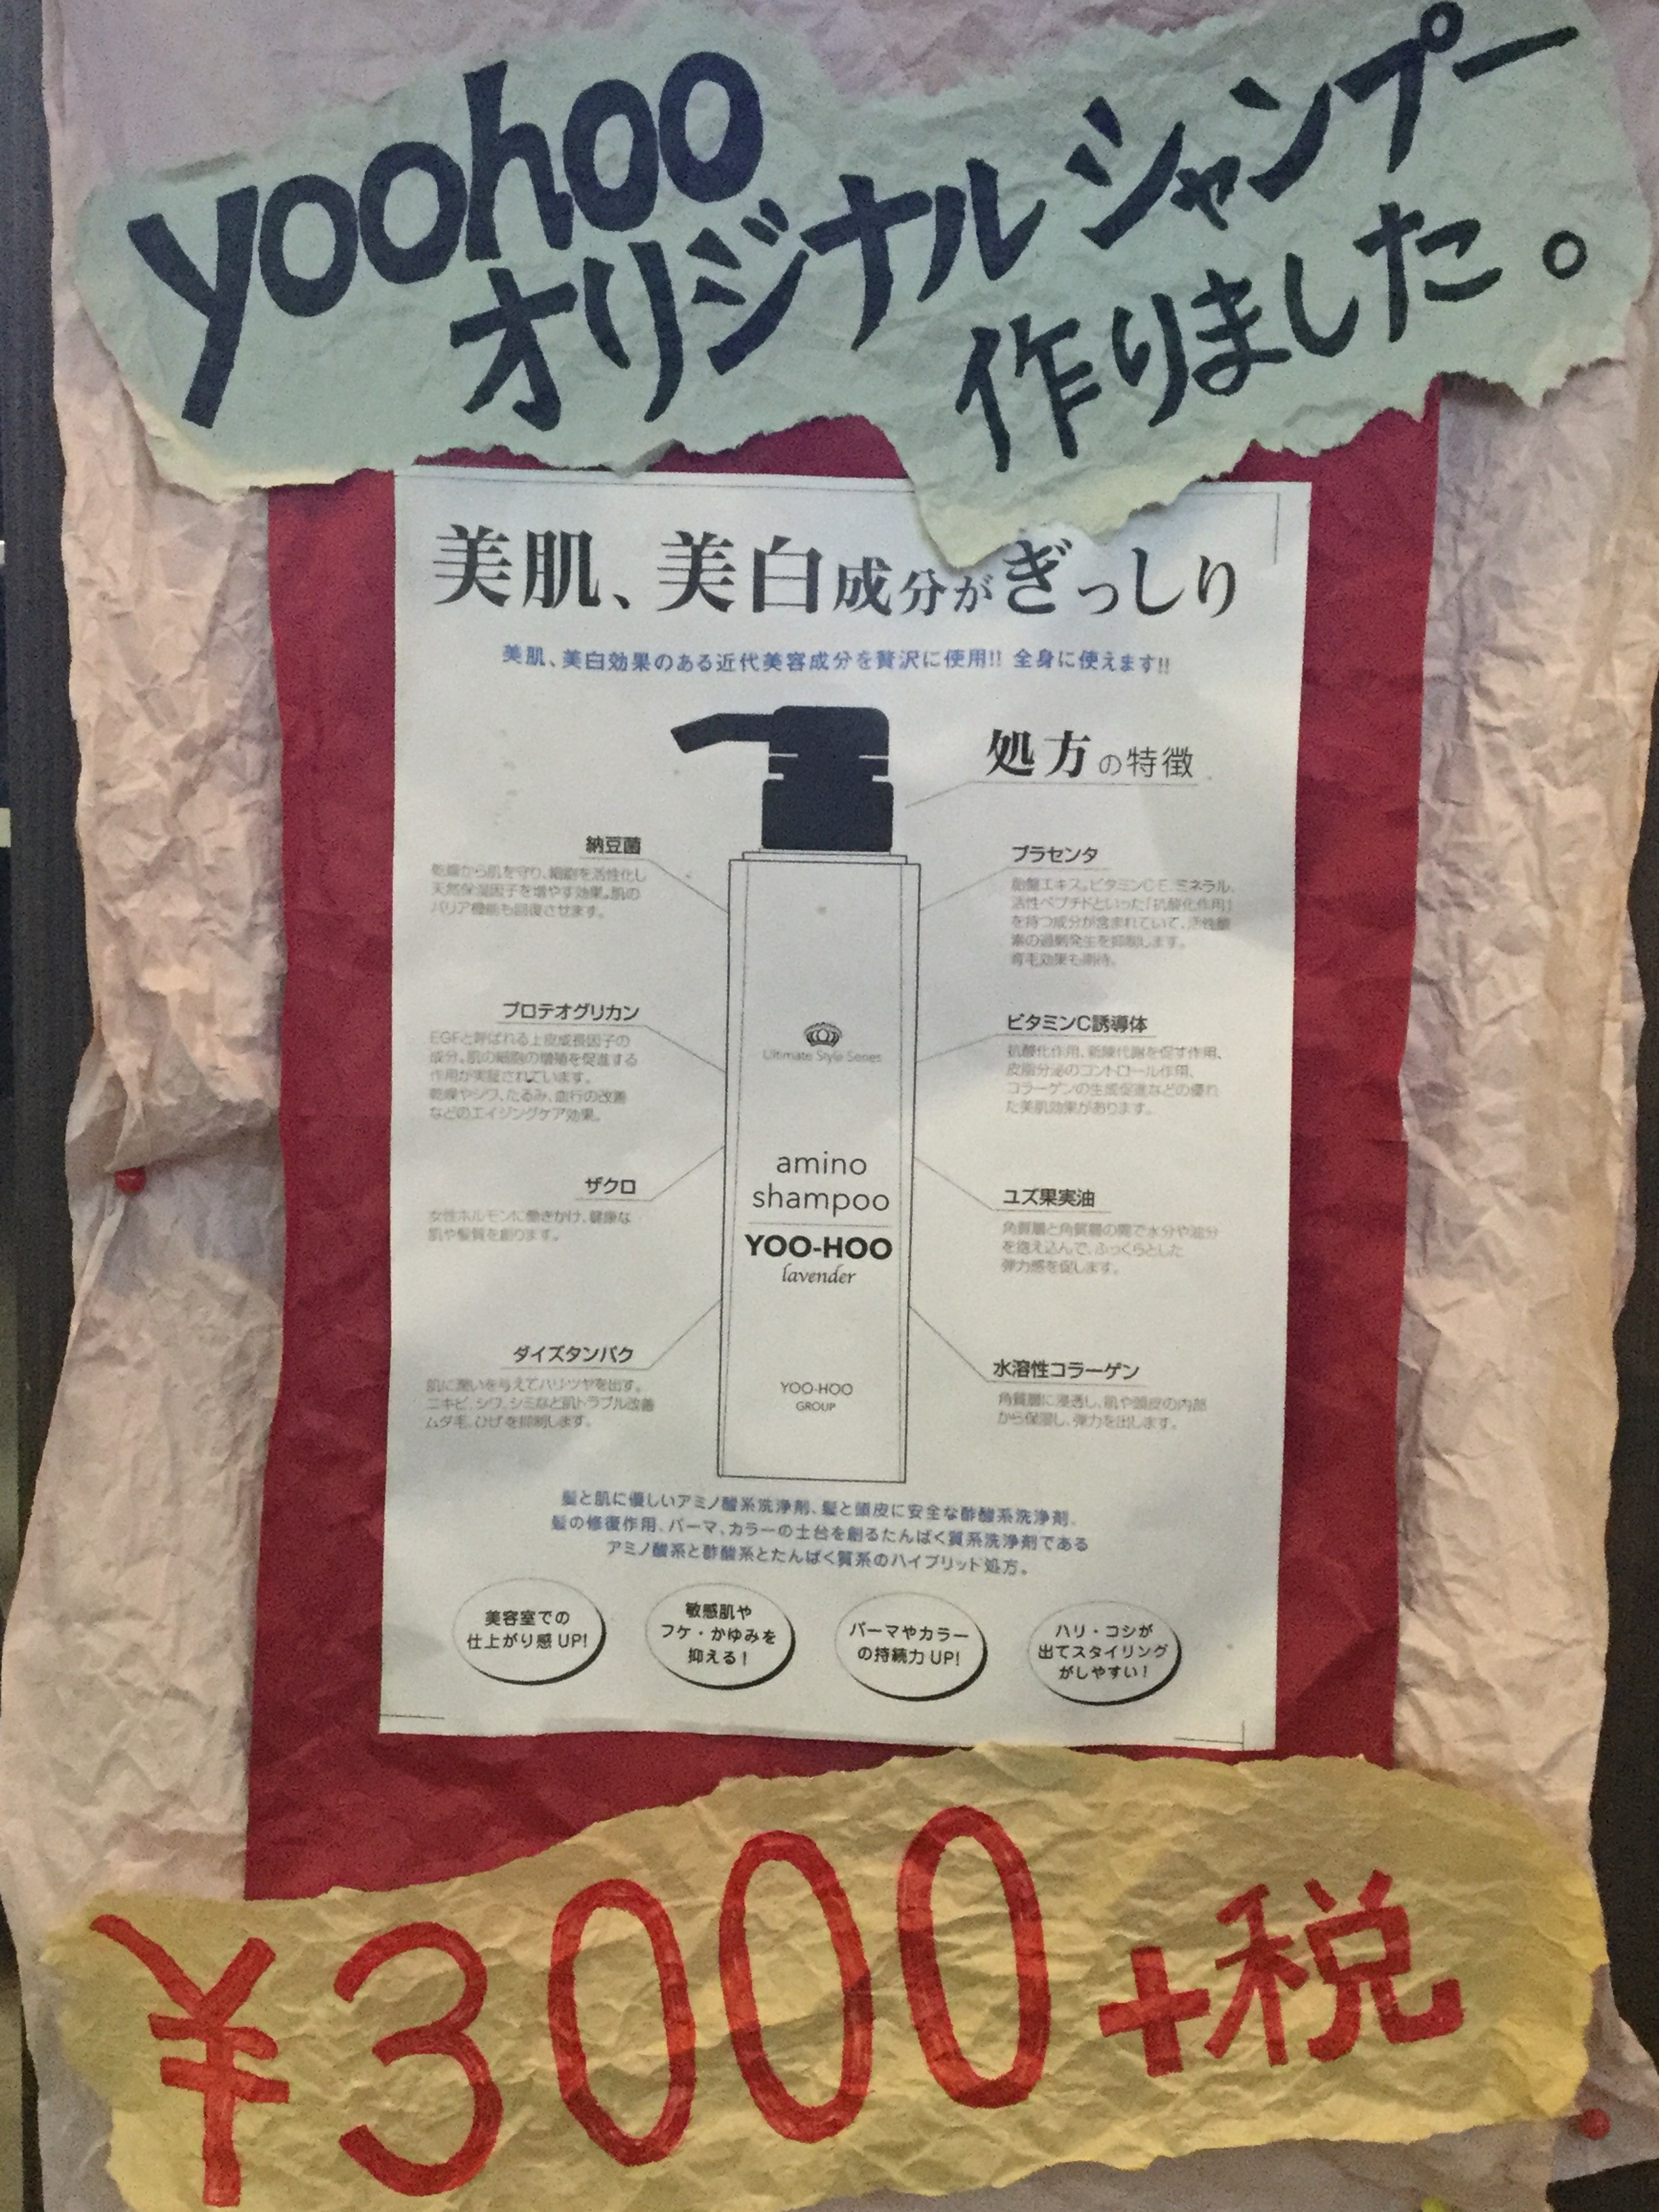 yoohoo
オリジナルシャンプー
作りました。
美肌、美白成分がぎっしり
美肌、美白効果のある近代美容成分を贅沢に使用!! 全身に使えます!!
処方の特徴
納豆菌
乾燥から肌を守り、細胞を活性化し
天然保湿因子を増やす効果。肌の
バリア機能も回復させます。
プラセンタ
胎盤エキス。ビタミンC・E、ミネラル、
活性ペプチドといった「抗酸化作用」
を持つ成分が含まれていて、活性酸
素の過剰発生を抑制します。
育毛効果も期待。
プロテオグリカン
EGFと呼ばれる上皮成長因子の
成分。肌の細胞の増殖を促進する
作用が実証されています。
乾燥やシワ、たるみ、血行の改善
などのエイジングケア効果。
ビタミンC誘導体
抗酸化作用、新陳代謝を促す作用、
皮脂分泌のコントロール作用、
コラーゲンの生成促進などの優れ
た美肌効果があります。
ザクロ
女性ホルモンに働きかけ、健康な
肌や髪質を創ります。
ユズ果実油
角質層と角質層の間で水分や油分
を抱え込んで、ふっくらとした
弾力感を促します。
ダイズタンパク
肌に潤いを与えてハリ・ツヤを出す。
ニキビ、シワ、シミなど肌トラブル改善
ムダ毛、ひげを抑制します。
水溶性コラーゲン
角質層に浸透し、肌や頭皮の内部
から保湿し、弾力を出します。
Ultimate Style Series
amino
shampoo
YOO-HOO
lavender
YOO-HOO
GROUP
髪と肌に優しいアミノ酸系洗浄剤、髪と頭皮に安全な酢酸系洗浄剤、
髪の修復作用、パーマ、カラーの土台を創るたんぱく質系洗浄剤である
アミノ酸系と酢酸系とたんぱく質系のハイブリッド処方。
美容室での
仕上がり感 UP!
敏感肌や
フケ・かゆみを
抑える!
パーマやカラー
の持続力 UP!
ハリ・コシが
出てスタイリング
がしやすい!
¥3000+税